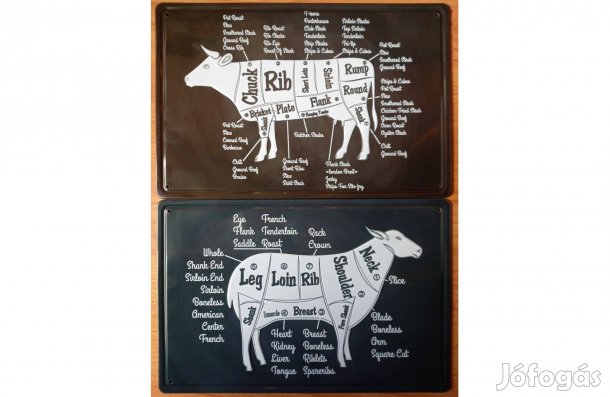 Pot Roast
Stew
Smothered Steak
Ground Beef
Cross Rib
Rib Roast
Rib Steaks
Rib Eye
Roast Of Steak
T-bone
Porterhouse
Club Steak
Tenderloin
Strip Steaks
Strips & Cubes
Sirloin Steaks
Top Sirloin
Tenderloin
Tri-tip
Strips & Cubes
Pot Roast
Stew
Smothered Steak
Ground Beef
Chuck
Rib
Short Loin
Sirloin
Rump
Round
Brisket
Plate
Flank
Shank
Shank
Strips & Cubes
Pot Roast
Stew
Smothered Steak
Chicken Fried Steak
Ground Beef
Oven Roast
Oyster Steak
Pot Roast
Stew
Corned Beef
Barbecue
Butcher Steaks
Chili
Ground Beef
Chili
Ground Beef
Braise
Ground Beef
Short Ribs
Stew
Skirt Steak
Flank Steak
«London Broil»
Jerky
Strips For Stir-fry
Eye
Flank
Saddle
French
Tenderloin
Roast
Rack
Crown
Whole
Shank End
Sirloin End
Sirloin
Boneless
American
Center
French
Leg
Loin
Rib
Shoulder
Neck
Slice
Shank
Innards
Breast
Fore Shank
Heart
Kidney
Liver
Tongue
Breast
Boneless
Riblets
Spareribs
Blade
Boneless
Arm
Square Cut
Jófogás